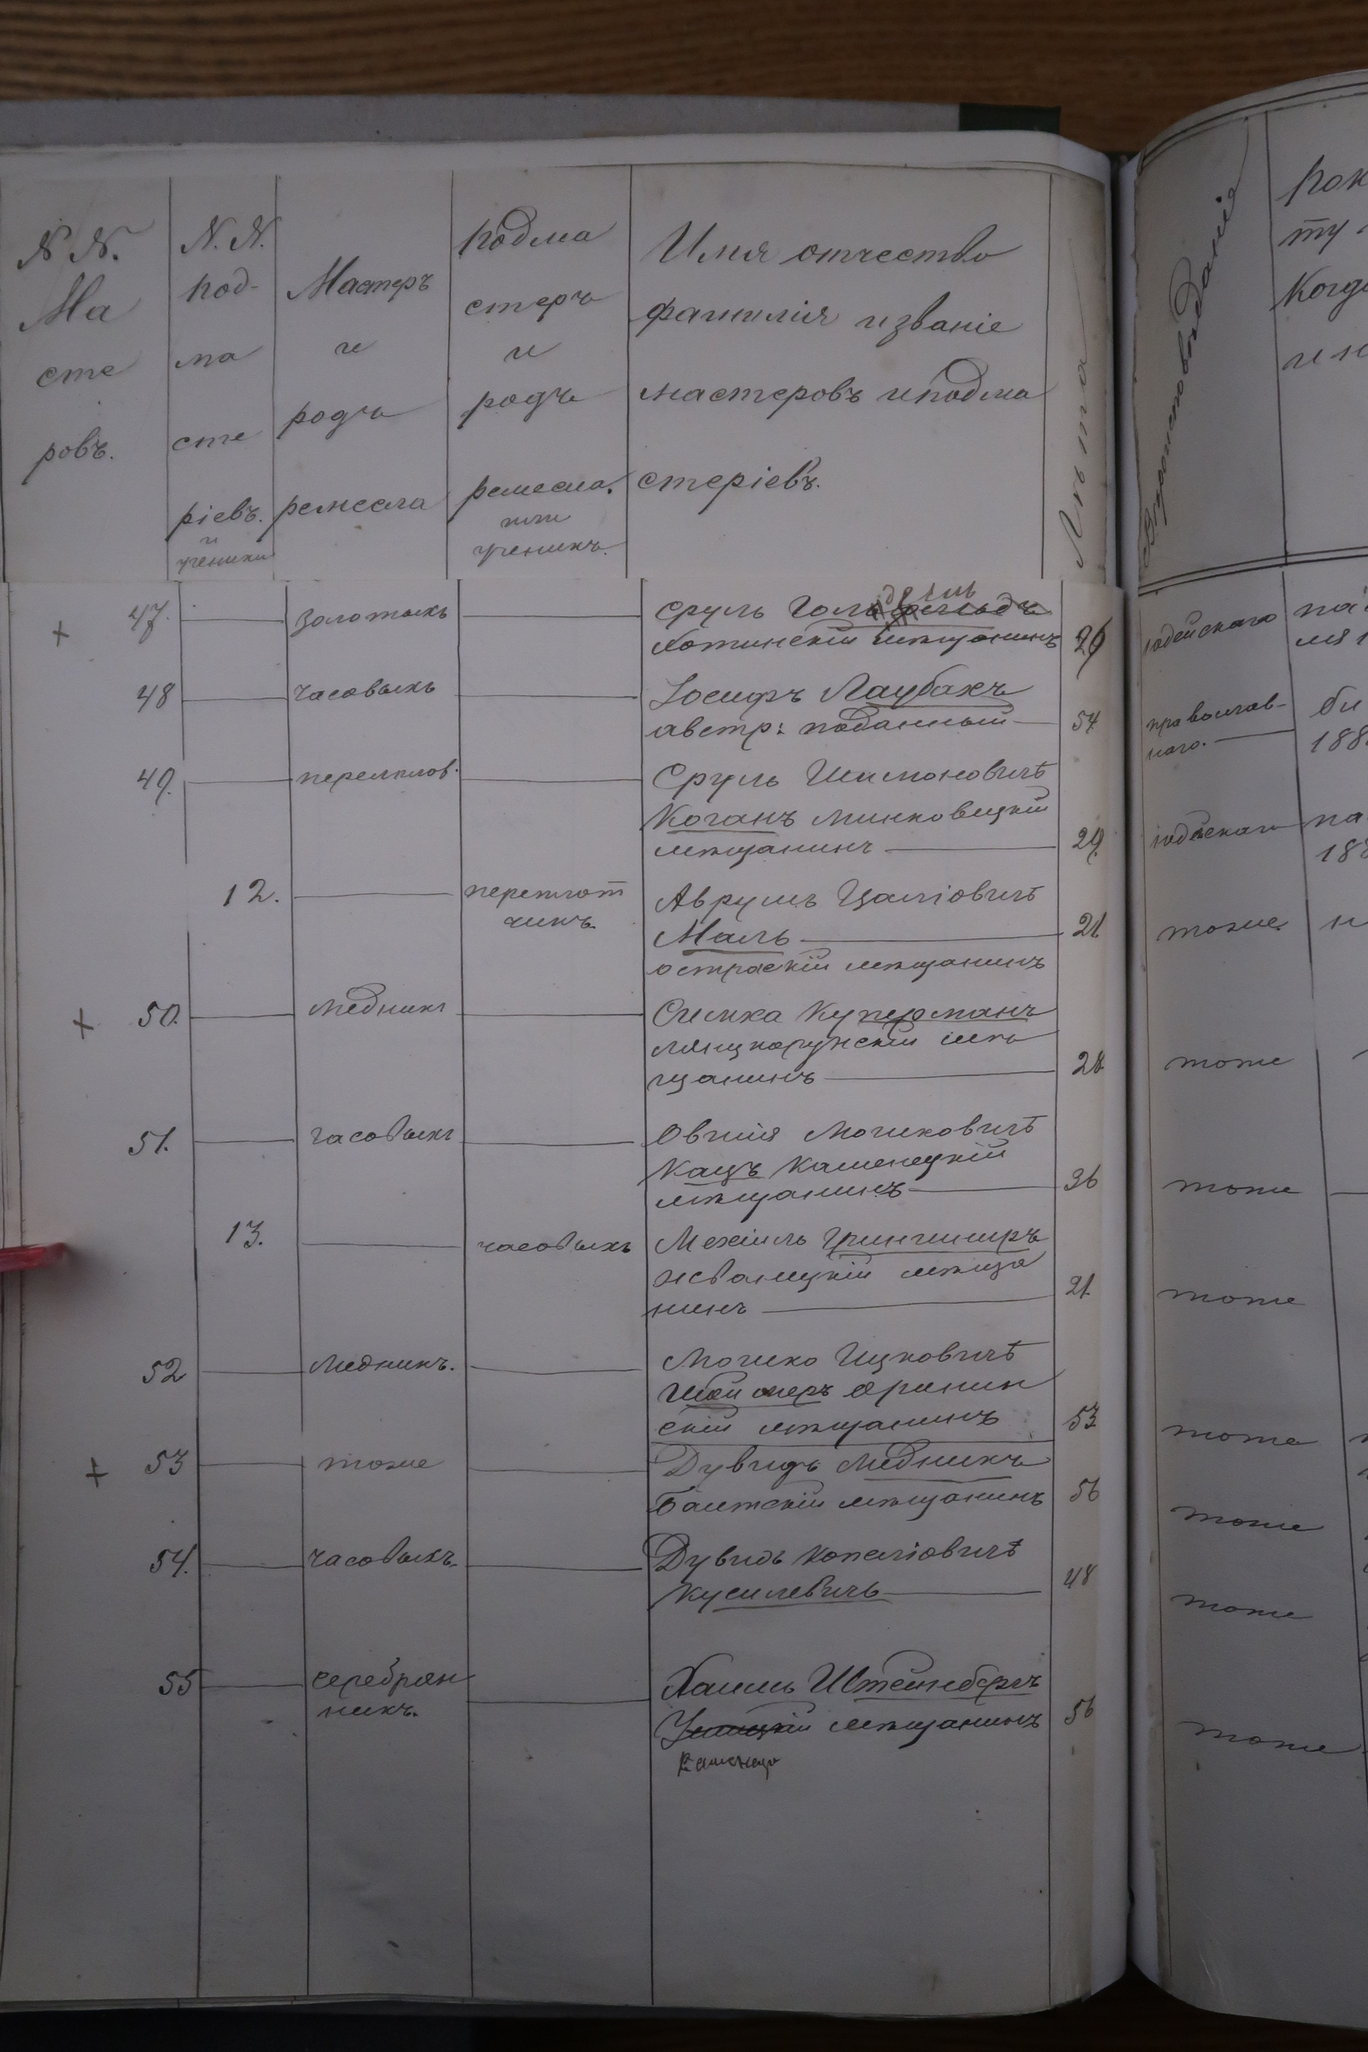 N N. Ма сте ровъ.
N. N. под- ма сте ріевъ. и ученики
Мастеръ и родъ ремесла
Подма стеръ и родъ ремесла. или ученикъ.
Имя отчество
фамилія и званіе
мастеровъ и подма
стеріевъ.
Лѣта
Вѣроисповѣданія
47. золотыхъ Сруль Голь
Хотинскій мѣщанинъ 26 іудейскаго
48 часовыхъ Іосифъ Лаубахъ
австр: подданный 54 православ-
наго.
49. переплов. Сруль Шимоновичъ
Коганъ Минковецкій
мѣщанинъ 29. іудейскаго
12. переплет Аврумъ Цаліовичъ
чикъ. Маль 21 тоже
острогскій мѣщанинъ
+ 50. Медникъ Симха Куперманъ
Лянцкорунскій мѣ
щанинъ 28 тоже
51. часовыхъ Овшія Мошковичъ
Кацъ Каменецкій
мѣщанинъ 36 тоже
13. часовыхъ Мехіиль Гринширъ
Жванецкій мѣща
нинъ 21. тоже
52 Медникъ. Мошко Ицковичъ
Оринин
скій мѣщанинъ 53 тоже
+ 53 тоже Дувидъ Медникъ
Балтскій мѣщанинъ 56 тоже
54. часовыхъ Дувидъ Копеліовичъ
Кусилевичъ 48 тоже
55 серебрян Хаимъ Штейнбергъ
никъ. мѣщанинъ 56 тоже
Каменец